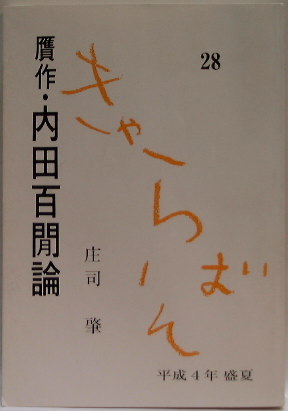 28
きゃらばん
贋作・内田百閒論
庄司 肇
平成4年盛夏